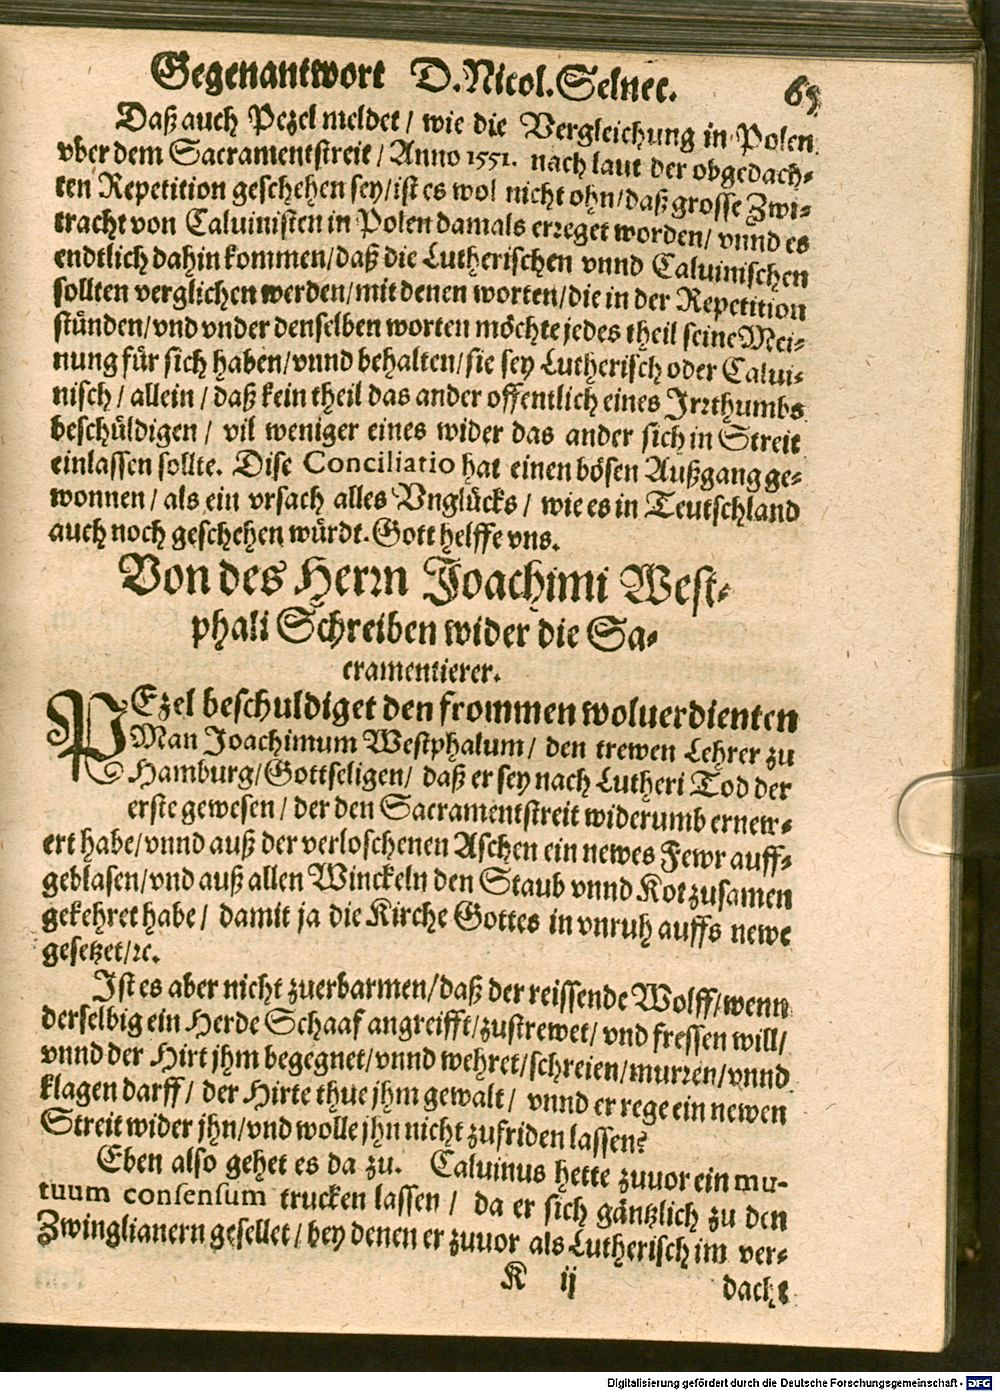 Gegenantwort D. Nicol. Selnec. 65
Daß auch Pezel meldet / wie die Vergleichung in Polen
vber dem Sacramentstreit / Anno 1551. nach laut der obgedach-
ten Repetition geschehen sey / ist es wol nicht ohn / daß grosse Zwi-
tracht von Caluinisten in Polen damals erreget worden / vnnd es
endtlich dahin kommen / daß die Lutherischen vnnd Caluinischen
sollten verglichen werden / mit denen worten / die in der Repetition
stünden / vnd vnder denselben worten möchte jedes theil seine Mei-
nung für sich haben / vnnd behalten / sie sey Lutherisch oder Calui-
nisch / allein / daß kein theil das ander offentlich eines Irrthumbs
beschüldigen / vil weniger eines wider das ander sich in Streit
einlassen sollte. Dise Conciliatio hat einen bösen Außgang ge-
wonnen / als ein vrsach alles Vnglücks / wie es in Teutschland
auch noch geschehen würdt. Gott helffe vns.
Von des Herrn Joachimi West-
phali Schreiben wider die Sa-
cramentierer.
PEzel beschuldiget den frommen woluerdienten
Man Joachimum Westphalum / den trewen Lehrer zu
Hamburg / Gottseligen / daß er sey nach Lutheri Tod der
erste gewesen / der den Sacramentstreit widerumb ernew-
ert habe / vnnd auß der verloschenen Aschen ein newes Fewr auff-
geblasen / vnd auß allen Winckeln den Staub vnnd Kot zusamen
gekehret habe / damit ja die Kirche Gottes in vnruh auffs newe
gesetzet / ꝛc.
Ist es aber nicht zuerbarmen / daß der reissende Wolff / wenn
derselbig ein Herde Schaaf angreifft / zustrewet / vnd fressen will /
vnnd der Hirt jhm begegnet / vnnd wehret / schreien / murren / vnnd
klagen darff / der Hirte thue jhm gewalt / vnnd er rege ein newen
Streit wider jhn / vnd wolle jhn nicht zufriden lassen?
Eben also gehet es da zu. Caluinus hette zuuor ein mu-
tuum consensum trucken lassen / da er sich gäntzlich zu den
Zwinglianern gesellet / bey denen er zuuor als Lutherisch im ver-
K ij dacht
Digitalisierung gefördert durch die Deutsche Forschungsgemeinschaft - DFG